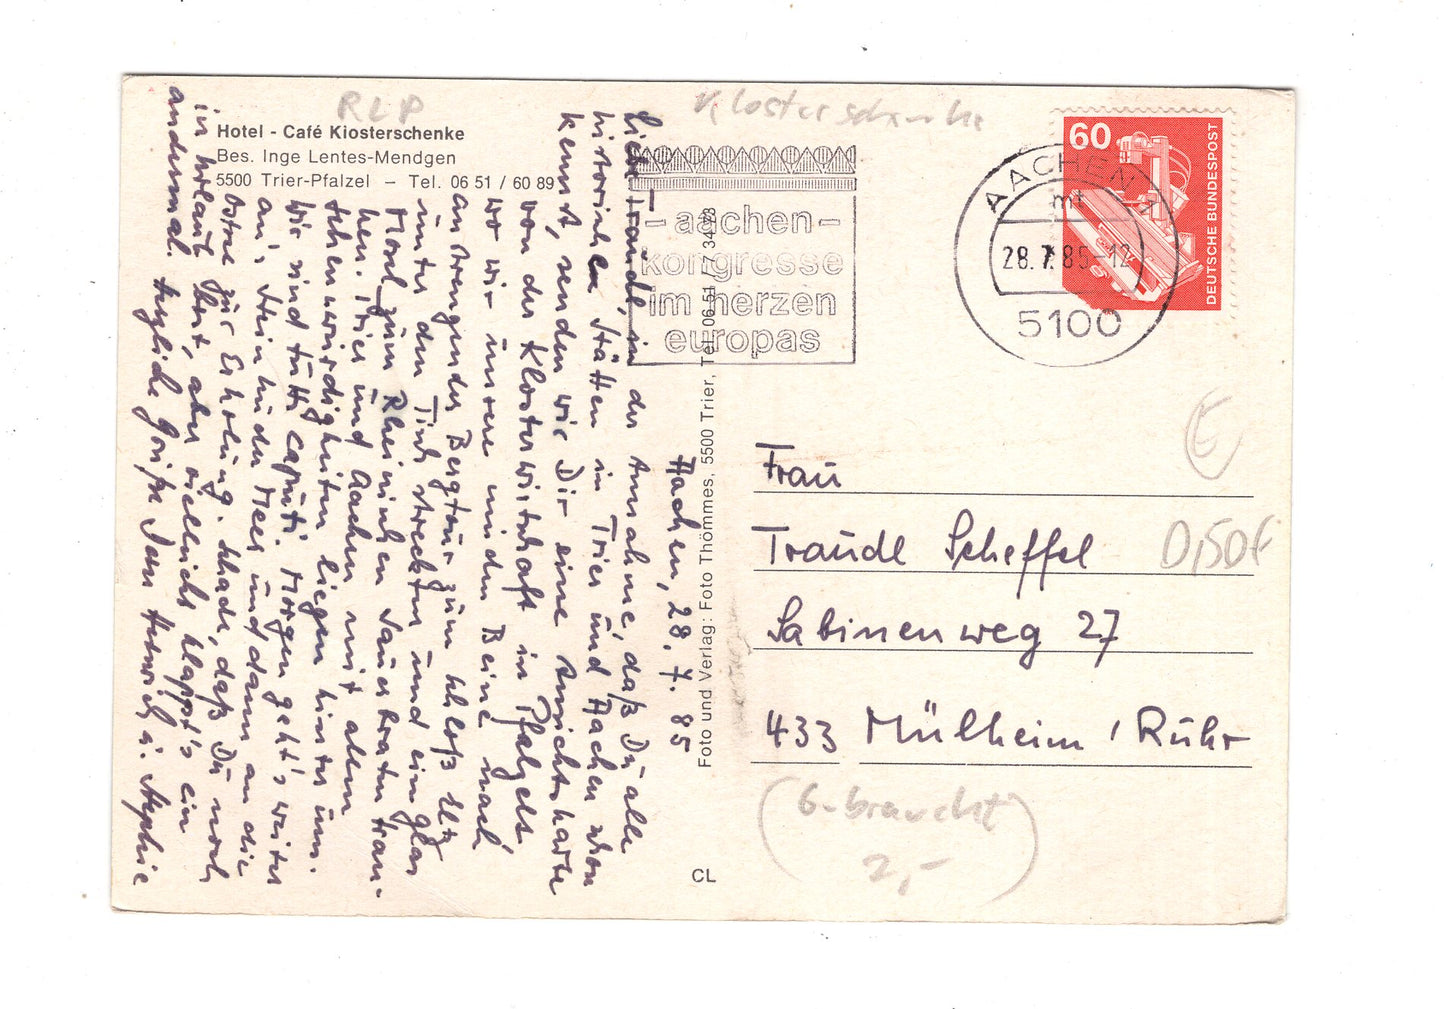 RLP
Klosterschenke
Hotel - Café Klosterschenke
Bes. Inge Lentes-Mendgen
5500 Trier-Pfalzel – Tel. 06 51 / 60 89
– aachen –
kongresse
im herzen
europas
AACHEN 1
mt
28.7.85-12
5100
60
DEUTSCHE BUNDESPOST
Aachen, 28. 7. 85
Liebe Traudl, in der Annahme, daß Du alle
historischen Stätten in Trier und Aachen schon
kennst, senden wir Dir eine Ansichtskarte
von der Klosterwirtschaft in Pfalzel,
wo wir unsere müden Beine nach
anstrengender Bergtour zum Schloß Eltz
unter den Tisch streckten und ein Glas
Mosel zum Rheinischen Sauerbraten tran-
ken. Trier und Aachen mit allen
Sehenswürdigkeiten liegen hinter uns.
Wir sind fußkaputt. Morgen geht's weiter
an's Steinhuder Meer und dann an die
Ostsee zur Erholung. Schade, daß Du noch
in Urlaub bist, aber vielleicht klappt's ein
andermal. Herzliche Grüße Dein Hartwich u. Stephie
Foto und Verlag: Foto Thömmes, 5500 Trier, Tel. 06 51 / 7 34 73
CL
Frau
Traudl Scheffel
Sabinenweg 27
433 Mülheim / Ruhr
€
0,50€
(Gebraucht)
2,-